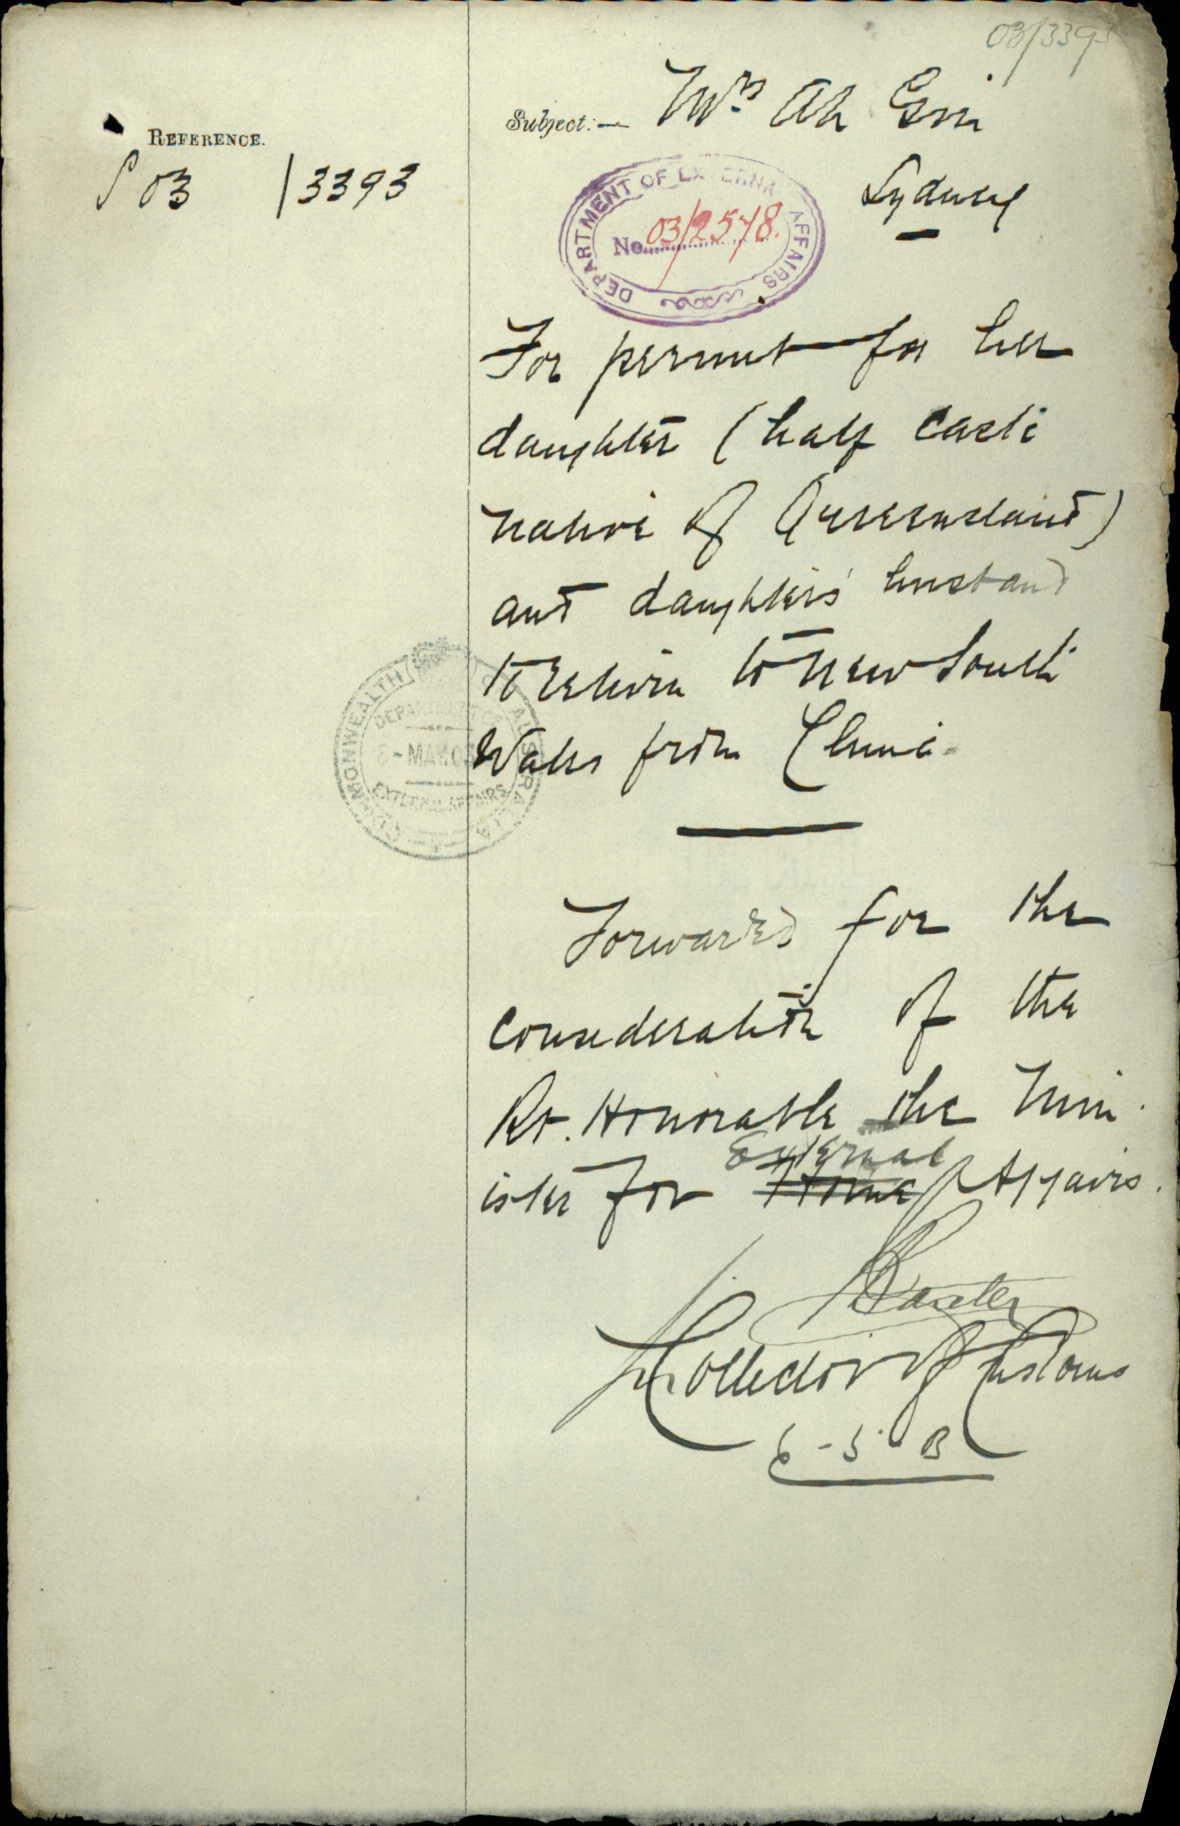 03/3393
REFERENCE.
S 03 /3393
Subject:— Mrs Ah Gin
Sydney
DEPARTMENT OF EXTERNAL AFFAIRS
No. 03/2578.
For permit for her
daughter (half caste
native of Queensland)
and daughter's husband
to return to New South
Wales from China.
COMMONWEALTH OF AUSTRALIA
DEPARTMENT OF
8 - MAY. 03
EXTERNAL AFFAIRS
Forwarded for the
consideration of the
Rt. Honorable the Min
External
ister for Home Affairs.
Baxter
Collector of Customs
6 - 5 - 03